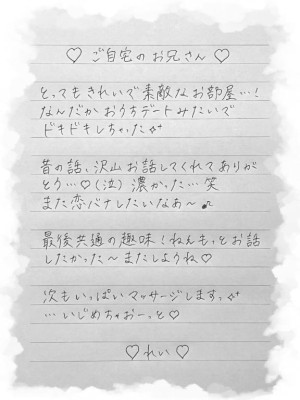 ♡ ご自宅のお兄さん ♡
とってもきれいで素敵なお部屋…!
なんだかおうちデートみたいで
ドキドキしちゃった✨
昔の話、沢山お話してくれてありが
とう…♡(泣) 濃かった…笑
また恋バナしたいなあ〜♪
最後共通の趣味!ねえもっとお話
したかった〜またしようね♡
次もいっぱいマッサージしますっ✨
…いじめちゃおーっと♡
♡れい♡